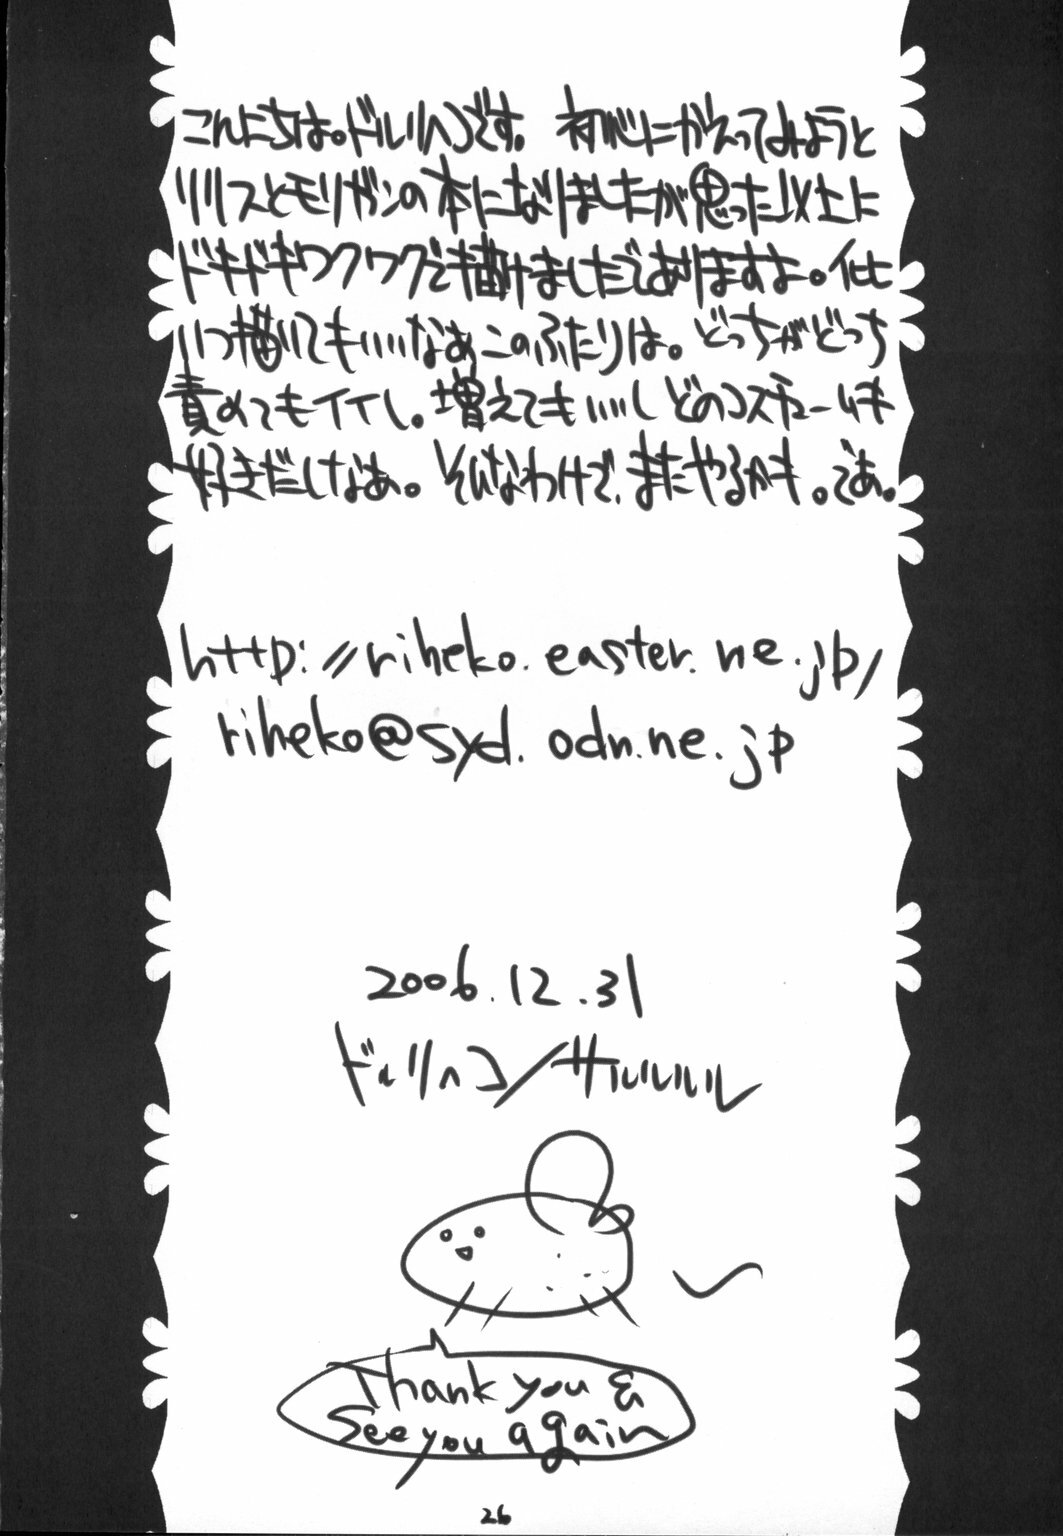 こんにちは。ドルリヘコです。 初心にかえってみようと
リリスとモリガンの本になりましたが思った以上に
ドキドキワクワクで描けましたでありますよ。
いつ描いてもいいなぁこのふたりは。どっちがどっち
責めてもイイし。増えてもいいし どのコスチュームも
好きだしなぁ。 そんなわけで、またやるかも。であ。
http://riheko.easter.ne.jp/
riheko@syd.odn.ne.jp
2006.12.31
ドルリヘコ/サルルルル
Thank you &
See you again
26